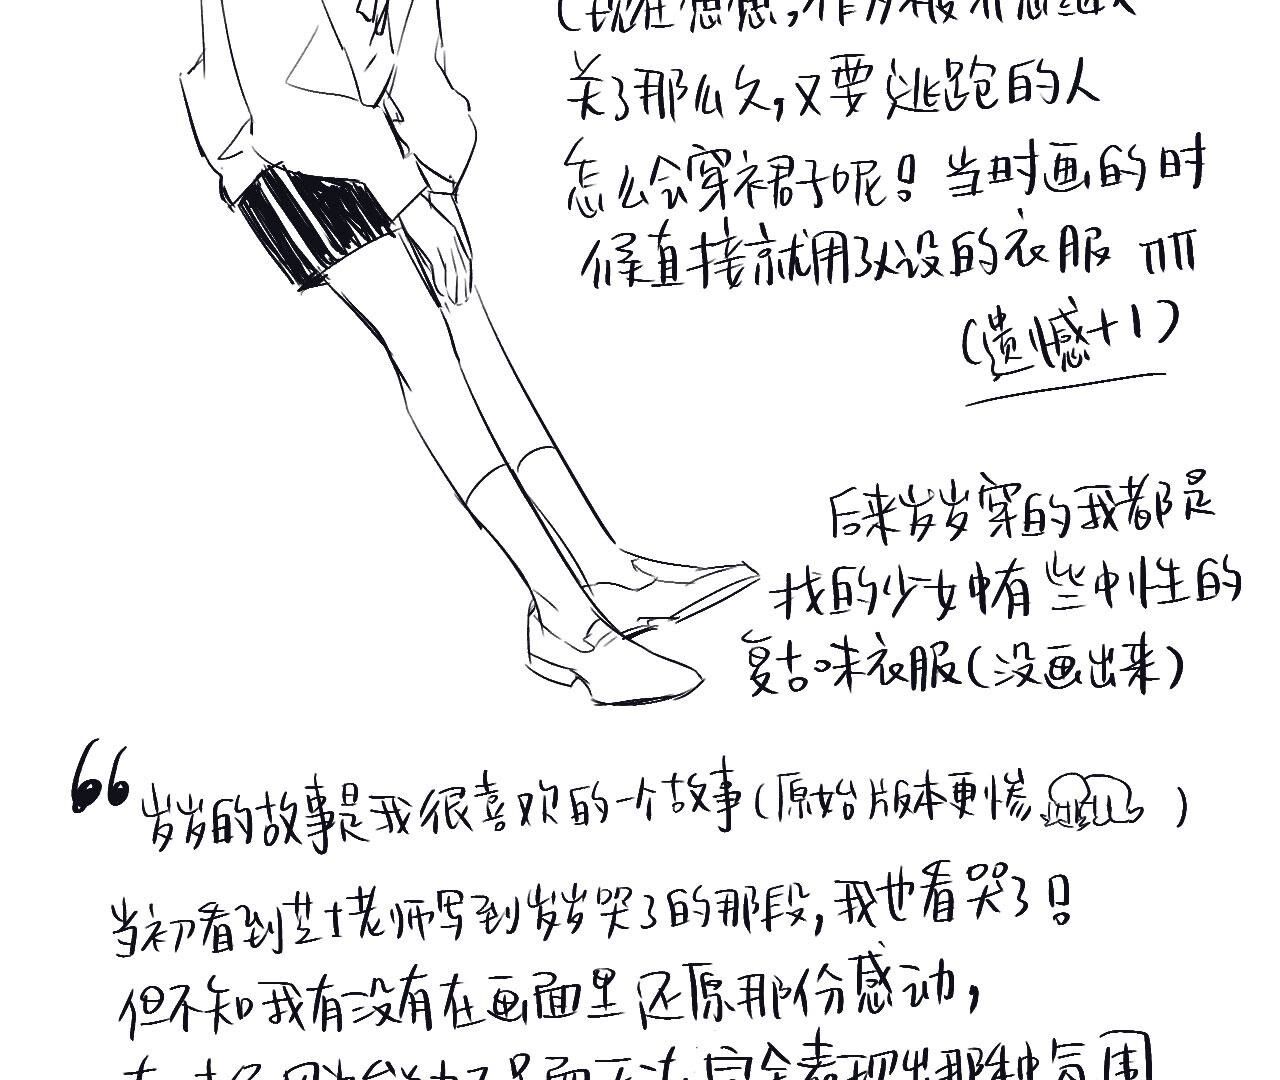 (现在想想，作为被
关了那么久，又要逃跑的人
怎么会穿裙子呢！当时画的时
候直接就用了默认设的衣服 πππ
(遗憾+1)
后来岁岁穿的我都是
找的少女中有些中性的
复古味衣服(没画出来)
岁岁的故事是我很喜欢的一个故事(原始版本更惨 )
当初看到芷十老师写到岁岁哭了的那段，我也看哭了！
但不知我有没有在画面里还原那份感动，
完全表现出那种氛围